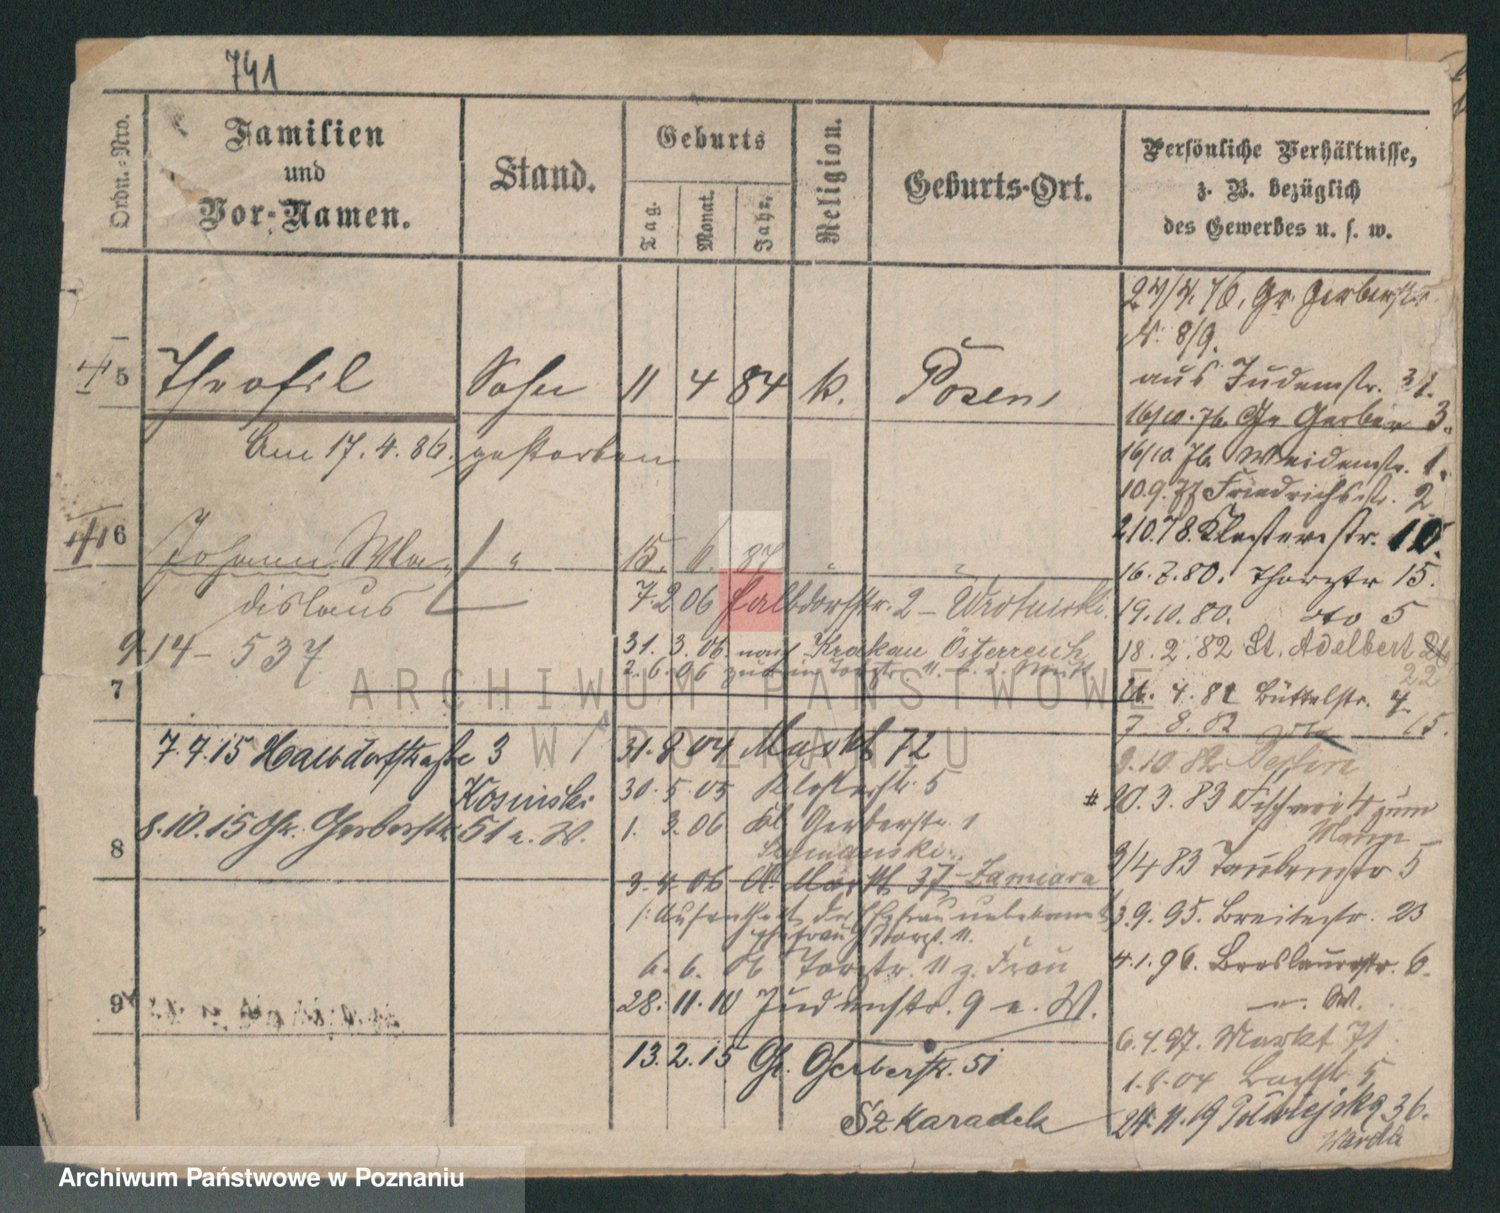 741
Ordn.-Nro.
Familien
und
Vor-Namen.
Stand.
Geburts
Tag.
Monat.
Jahr.
Religion.
Geburts-Ort.
Persönliche Verhältnisse,
z. B. bezüglich
des Gewerbes u. s. w.
5 Theofil Sohn 11 4 84 k. Posen
Am 17. 4. 86. gestorben
6 Johann Wla-
dislaus
15. 6. 87
7. 2 06 Halbdorfstr. 2 -
914 - 537
31. 3. 06 nach Krakau Österreich
2. 6. 06
7
7. 7. 15 Halbdorfstraße 3
Kosinski
8. 10. 15 Gr. Gerberstr. 51 e. W.
8
9
31. 8. 04 Markt 72
30. 5. 05 Klosterstr. 5
1. 3. 06 Kl. Gerberstr. 1
3. 4. 06 A. Markt 37 - Zamiara
/: Aufenthalt der Ehefrau unbekannt
6. 6. 06 Torstr. 11 z. Frau
28. 11. 10 Judenstr. 9 e. W.
13. 2. 15 Gr. Gerberstr. 51
Szkaradek
27/4. 76, Gr. Gerberstr.
N. 8/9.
aus Judenstr. 31.
16/10. 76. Gr Gerber 3.
16/10. 76. Weidenstr. 1.
10. 9. 77 Friedrichsstr. 2
2 10. 78. Klosterstr. 10.
16. 7. 80. Thorstr 15.
19. 10. 80. dto 5
18. 2. 82 St. Adelbert
22
26. 4. 82 Büttelstr. 7
7. 8. 82 15.
9. 10. 82
# 20. 3. 83 zum
3/4 83 Taubenstr 5
3. 9. 95. Breitestr. 23
4. 1. 96. Breslauerstr. 6.
W.
6. 4. 97. Markt 71
1. 8. 04 Bachstr. 5
24. 11. 19 Półwiejska 36.
Warda
ARCHIWUM PAŃSTWOWE
W POZNANIU
Archiwum Państwowe w Poznaniu